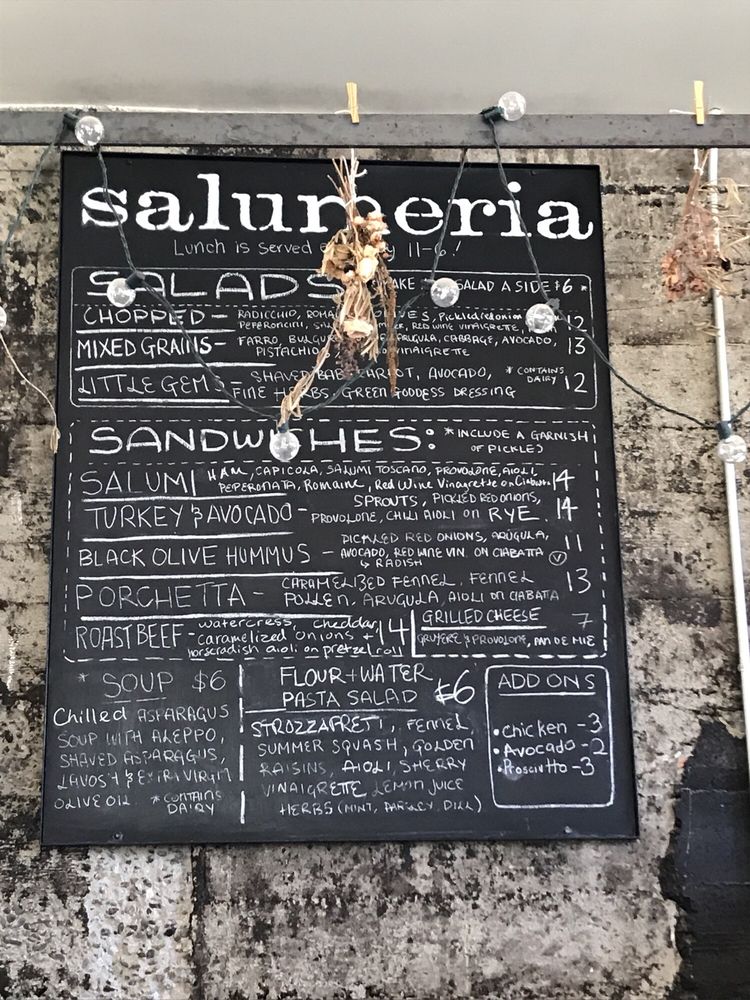 salumeria
Lunch is served 11-6!
SALADS
SALAD A SIDE $6 *
CHOPPED - RADICCHIO, Pickled red onion
PEPERONCINI, RED WINE VINAIGRETTE, 12
MIXED GRAINS - FARRO, BULGUR ARUGULA, CABBAGE, AVOCADO, 13
PISTACHIO VINAIGRETTE
LITTLE GEMS - SHAVED CARROT, AVOCADO, * CONTAINS DAIRY 12
FINE HERBS, GREEN GODDESS DRESSING
SANDWICHES: * INCLUDE A GARNISH
OF PICKLES
SALUMI HAM, CAPICOLA, SALUMI TOSCANO, PROVOLONE, AIOLI 14
PEPERONATA, Romaine, Red Wine Vinagrette on Ciabatta
TURKEY & AVOCADO - SPROUTS, PICKLED RED ONIONS, 14
PROVOLONE, CHILI AIOLI on RYE.
BLACK OLIVE HUMMUS - PICKLED RED ONIONS, ARUGULA, 11
AVOCADO, RED WINE VIN. ON CIABATTA V
RADISH
PORCHETTA - CARAMELIZED FENNEL, FENNEL 13
POLLEN, ARUGULA, AIOLI ON CIABATTA
ROAST BEEF - watercress, cheddar, 14
caramelized onions +
horseradish aioli on pretzel roll
GRILLED CHEESE 7
GRUYERE & PROVOLONE, PAN DE MIE
* SOUP $6
Chilled ASPARAGUS
SOUP WITH ALEPPO,
SHAVED ASPARAGUS,
LAVOSH & EXTRA VIRGIN
OLIVE OIL * CONTAINS
DAIRY
FLOUR + WATER
PASTA SALAD $6
STROZZAPRETI, FENNEL,
SUMMER SQUASH, GOLDEN
RAISINS, AIOLI, SHERRY
VINAIGRETTE LEMON JUICE
HERBS (MINT, PARSLEY, DILL)
ADD ONS
• chicken - 3
• Avocado - 2
• Prosciutto - 3